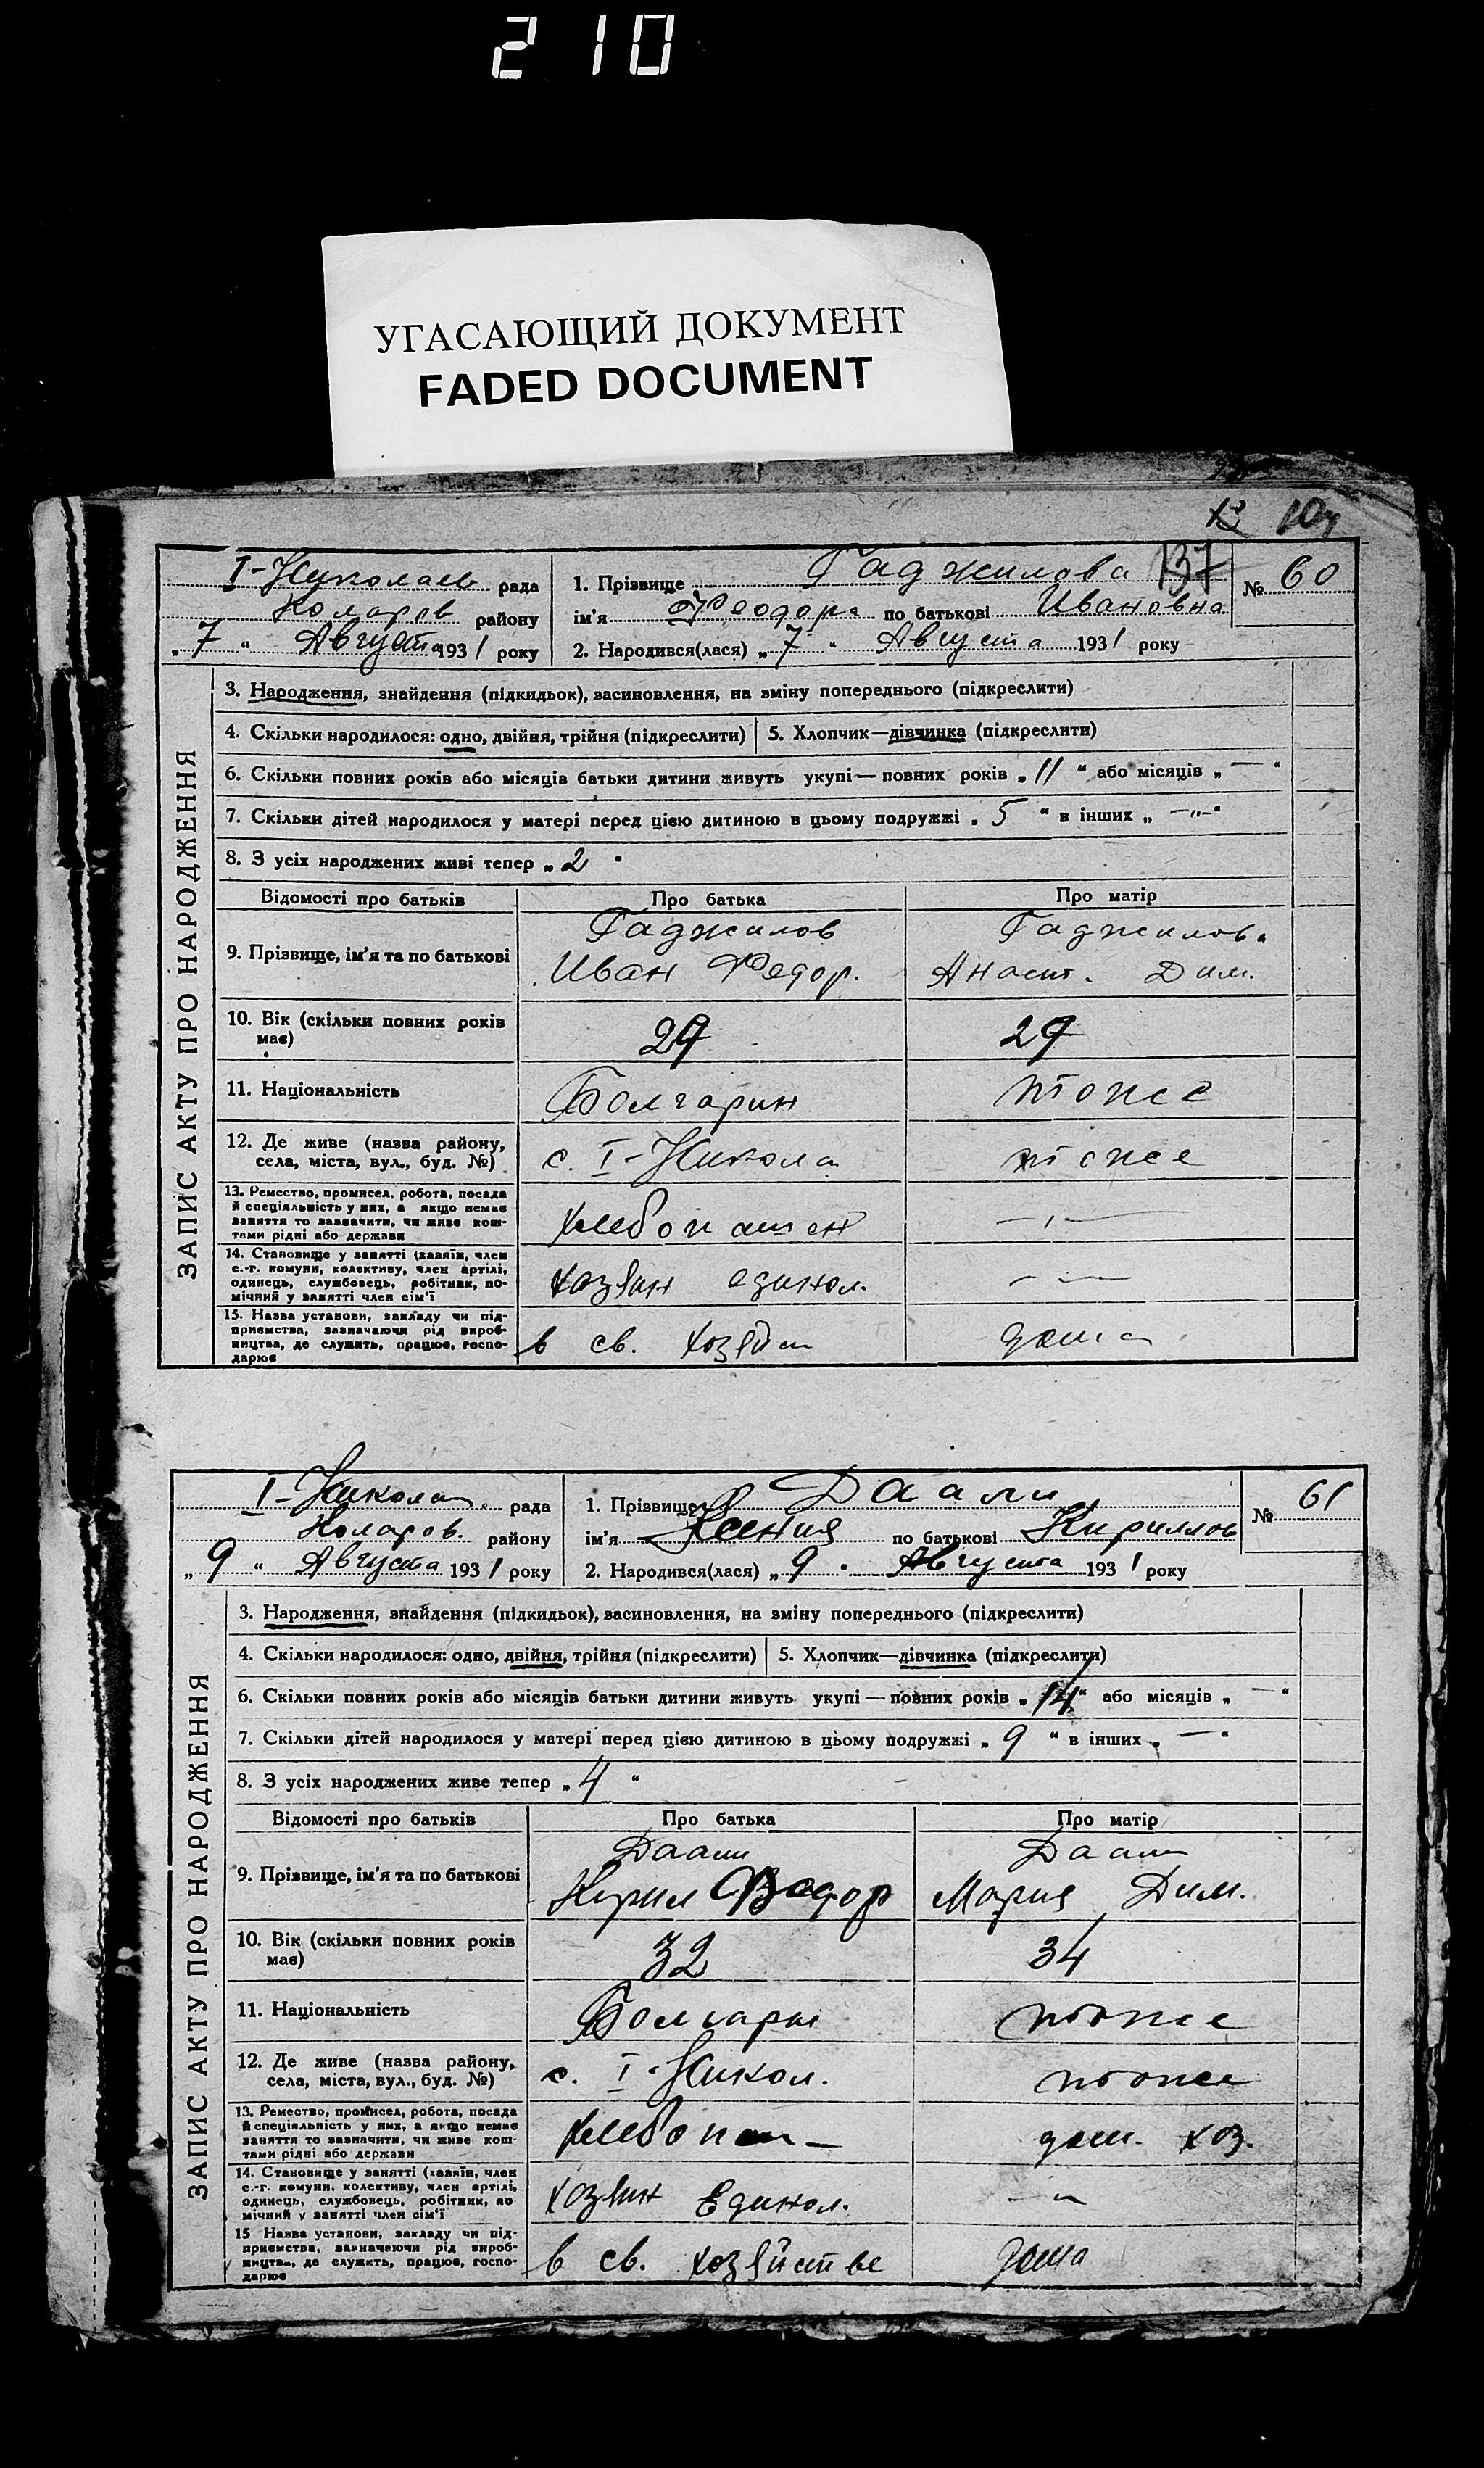 210
УГАСАЮЩИЙ ДОКУМЕНТ
FADED DOCUMENT
137
І-Николаев рада
Коларов району
„7“ Августа 1931 року
1. Прізвище Гаджилова
ім'я Феодора по батькові Ивановна
2. Народився(лася) „7“ Августа 1931 року
№ 60
ЗАПИС АКТУ ПРО НАРОДЖЕННЯ
3. Народження, знайдення (підкидьок), засиновлення, на зміну попереднього (підкреслити)
4. Скільки народилося: одно, двійня, трійня (підкреслити) 5. Хлопчик—дівчинка (підкреслити)
6. Скільки повних років або місяців батьки дитини живуть укупі—повних років „11“ або місяців „—“
7. Скільки дітей народилося у матері перед цією дитиною в цьому подружжі „5“ в інших „—"—“
8. З усіх народжених живі тепер „2“
Відомості про батьків Про батька Про матір
9. Прізвище, ім'я та по батькові
Гаджилов
Иван Федор.
Гаджилов.
Анаст. Дим.
10. Вік (скільки повних років має)
29
29
11. Національність
Болгарин
тоже
12. Де живе (назва району,
села, міста, вул., буд. №)
с. І-Никола
тоже
13. Ремество, промисел, робота, посада
й спеціяльність у них, а якщо немає
заняття то зазначити, чи живе кош-
тами рідні або держави
хлебопашен
14. Становище у занятті (хазяїн, член
с.-г. комуни, колективу, член артілі,
одинець, службовець, робітник, по-
мічний у занятті член сім'ї
хозяин единол.
15. Назва установи, закладу чи під-
приємства, зазначаючи рід вироб-
ництва, де служить, працює, госпо-
дарює
в св. хозяйст
дома
І-Никола. рада
Коларов. району
„9“ Августа 1931 року
1. Прізвище Даали
ім'я Ксения по батькові Кириллов
2. Народився(лася) „9“ Августа 1931 року
№ 61
ЗАПИС АКТУ ПРО НАРОДЖЕННЯ
3. Народження, знайдення (підкидьок), засиновлення, на зміну попереднього (підкреслити)
4. Скільки народилося: одно, двійня, трійня (підкреслити) 5. Хлопчик—дівчинка (підкреслити)
6. Скільки повних років або місяців батьки дитини живуть укупі—повних років „14“ або місяців „—“
7. Скільки дітей народилося у матері перед цією дитиною в цьому подружжі „9“ в інших „—“
8. З усіх народжених живе тепер „4“
Відомості про батьків Про батька Про матір
9. Прізвище, ім'я та по батькові
Даали
Кирил Федор
Даали
Мария Дим.
10. Вік (скільки повних років має)
32
34
11. Національність
Болгары
тоже
12. Де живе (назва району,
села, міста, вул., буд. №)
с. І-Никол.
тоже
13. Ремество, промисел, робота, посада
й спеціяльність у них, а якщо немає
заняття то зазначити, чи живе кош-
тами рідні або держави
хлебопаш
дом. хоз.
14. Становище у занятті (хазяїн, член
с.-г. комуни, колективу, член артілі,
одинець, службовець, робітник, по-
мічний у занятті член сім'ї
хозяин Единол.
15 Назва установи, закладу чи під-
приємства, зазначаючи рід вироб-
ництва, де служить, працює, госпо-
дарює
в св. хозяйстве
дома